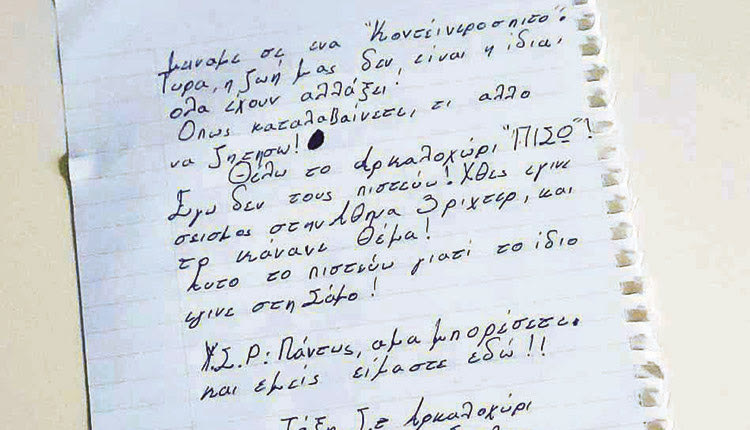 μεναμε σε ενα "Κοντείνεροσπιτο".
Τωρα, η ζωή μας δεν είναι η ίδια,
ολα έχουν αλλάξει!
Οπως καταλαβαίνετε, τι αλλο
να ζητησω!
Θέλω το Αρκαλοχώρι "ΠΙΣΩ"!
Εγω δεν τους πιστευω! Χθες εγινε
σεισμος στην Αθηνα 3 ριχτερ, και
το κάνανε θέμα!
Αυτο το πιστευω γιατί το ίδιο
εγινε στη Σάμο!
Υ.Σ.Ρ: Πάντως, αμα μπορέσετε.
και εμείς είμαστε εδώ!!
Τάξη Αρκαλοχώρι